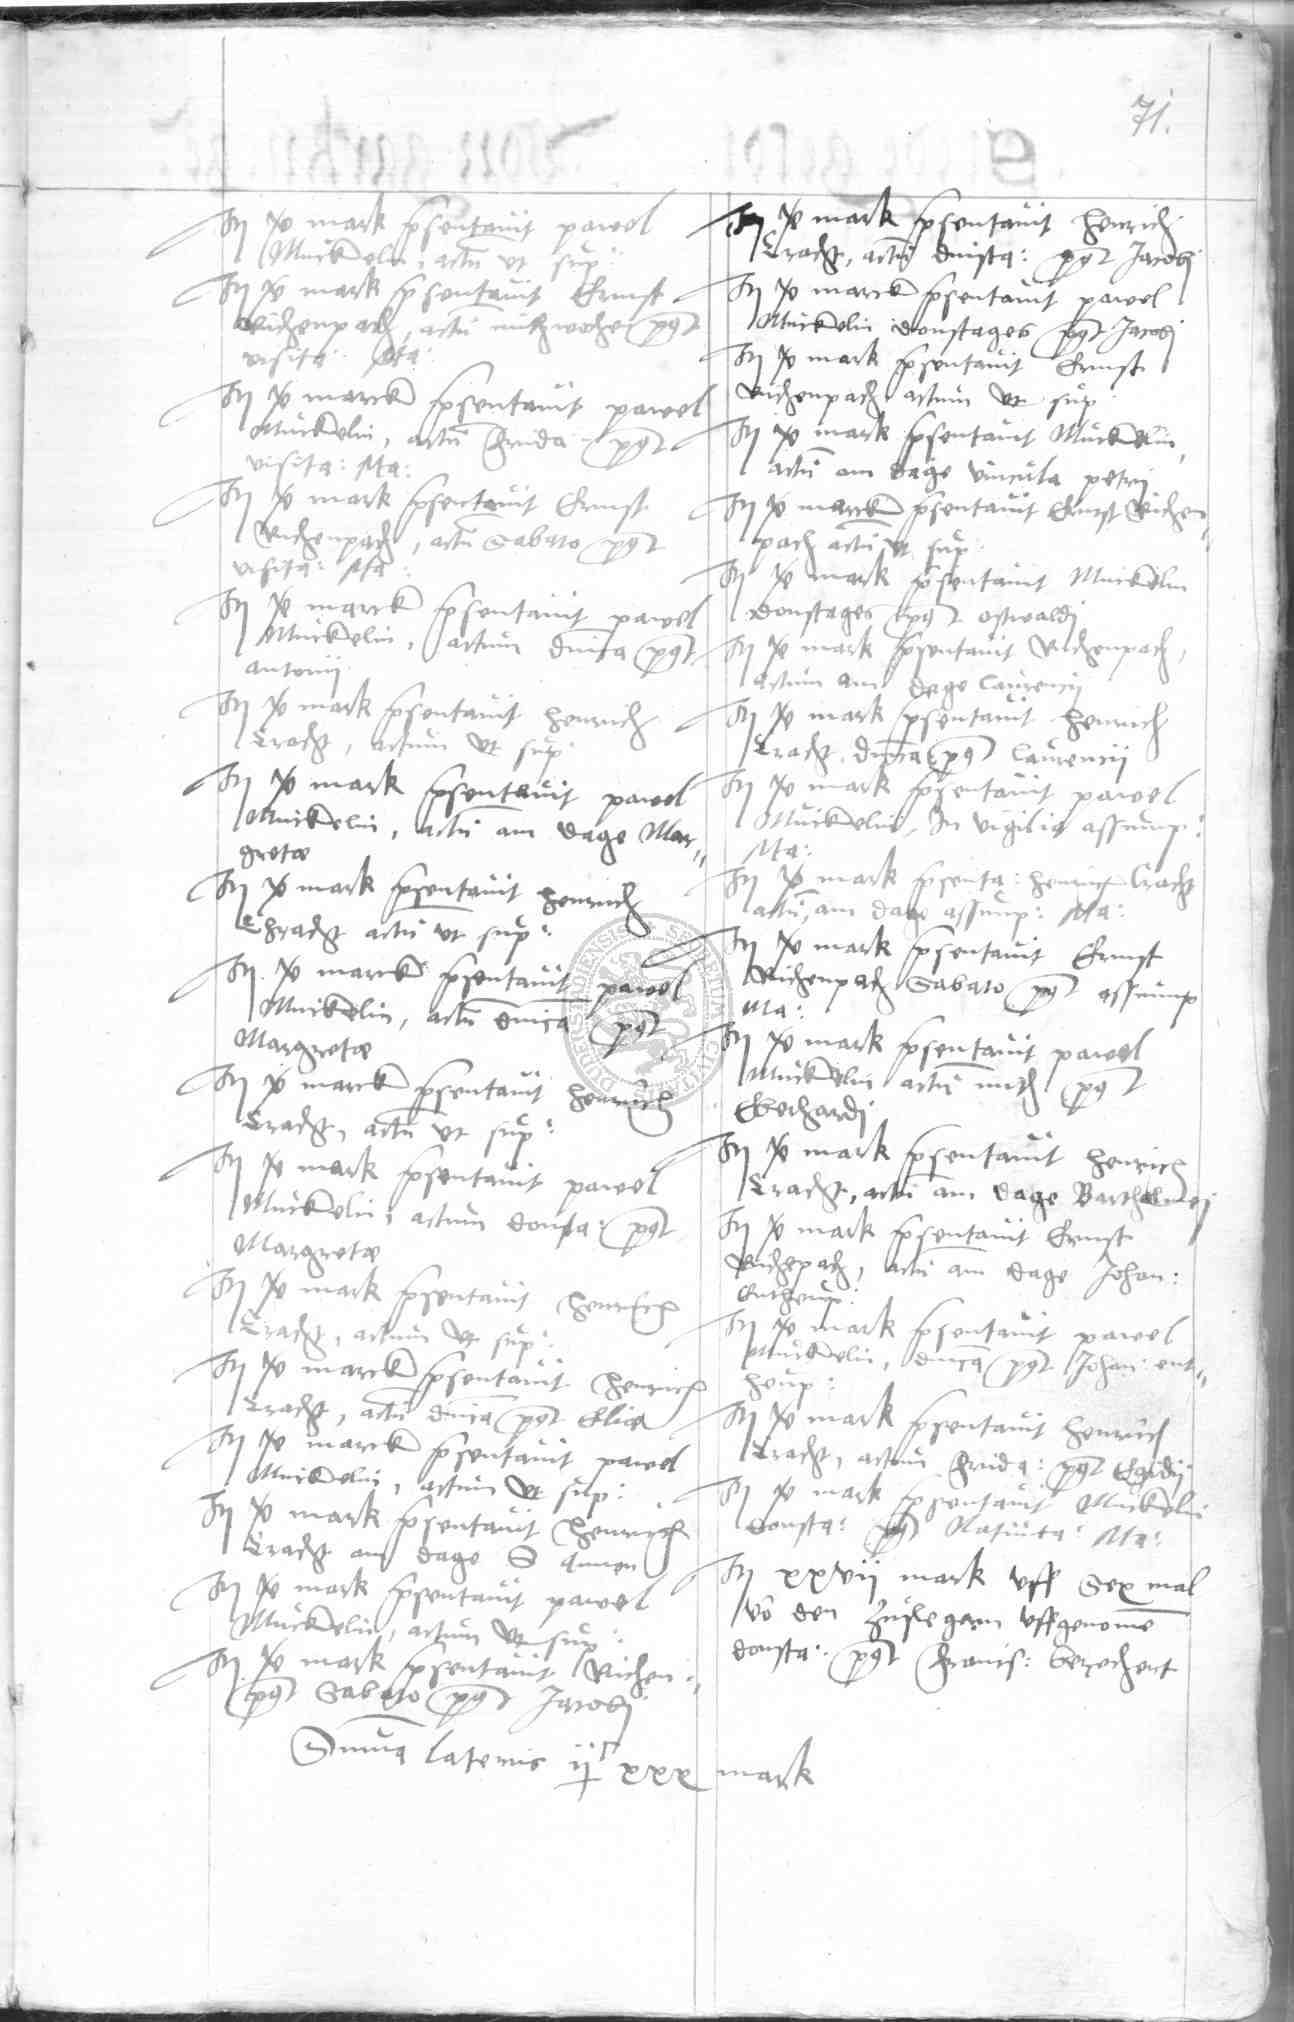 71.
It xv mark presentavit pawel
Muckelin, actu ut sup:
It xv mark presentavit Ernst
Richenpach, actu mithwoche post
visita: Ma:
It xv marck presentavit pawel
Muckelin, actu Frida: post
visita: Ma:
It xv mark presentavit Ernst
Richenpach, actu Sabato post
visita: Ma:
It xv marck presentavit pawel
Muckelin, actum dnica post
antonii
It xv mark presentavit Henrich
Tracht, actum ut sup:
It xv mark presentavit pawel
Muckelin, actu am dage Mar=
gretae
It xv mark presentavit Henrich
Thracht actu ut sup:
It xv marck presentavit pawel
Muckelin, actu dnica post
Margretae
It xv marck presentavit Henrich
Tracht, actu ut sup:
It xv mark presentavit pawel
Muckelin, actum donsta: post
Margretae
It xv mark presentavit Henrich
Tracht, actum ut sup:
It xv marck presentavit Henrich
Tracht, actu dnica post
It xv marck presentavit pawel
Muckelin, actum ut sup:
It xv mark presentavit Henrich
Tracht am dage S Annen
It xv mark presentavit pawel
Muckelin, actum ut sup:
It xv mark presentavit Richen=
Sabato post Jacobi
Summa lateris xxx mark
It xv mark presentavit Henrich
Tracht, actu dinsta: post Jacobi
It xv marck presentavit pawel
Muckelin donstages post Jacobi
It xv mark presentavit Ernst
Richenpach actum ut sup
It xv mark presentavit Muckelin,
actu am dage vincula petri
It xv marck presentavit Ernst Richen=
pach actu ut sup:
It xv mark presentavit Muckelin
donstages post oswaldi
It xv mark presentavit Richenpach,
actum am dage laurencii
It xv mark presentavit Henrich
Tracht, dnica post laurencii
It xv mark presentavit pawel
Muckelin, In vigilia assump:
Ma:
It xv mark presenta: Henrich Tracht
actu, am dage assump: Ma:
It xv mark presentavit Ernst
Richenpach Sabato post assump
Ma:
It xv mark presentavit pawel
Muckelin actu mith post
Eberhardi
It xv mark presentavit Henrich
Tracht, actu am dage Bartholmei
It xv mark presentavit Ernst
Richepach, actu am dage Johan:
entheup:
It xv mark presentavit pawel
Muckelin, dnica post Johan: ent=
heup:
It xv mark presentavit Henrich
Tracht, actum Frida: post Egidii
It xv mark presentavit Muckelin
donsta: post Nativita: Ma:
It xxvii mark uff Sex mal
vo den zuslegern uffgenome
donsta: post Francis: berechent
DUDERSTADIENSIS SECRETUM CIVITATIS